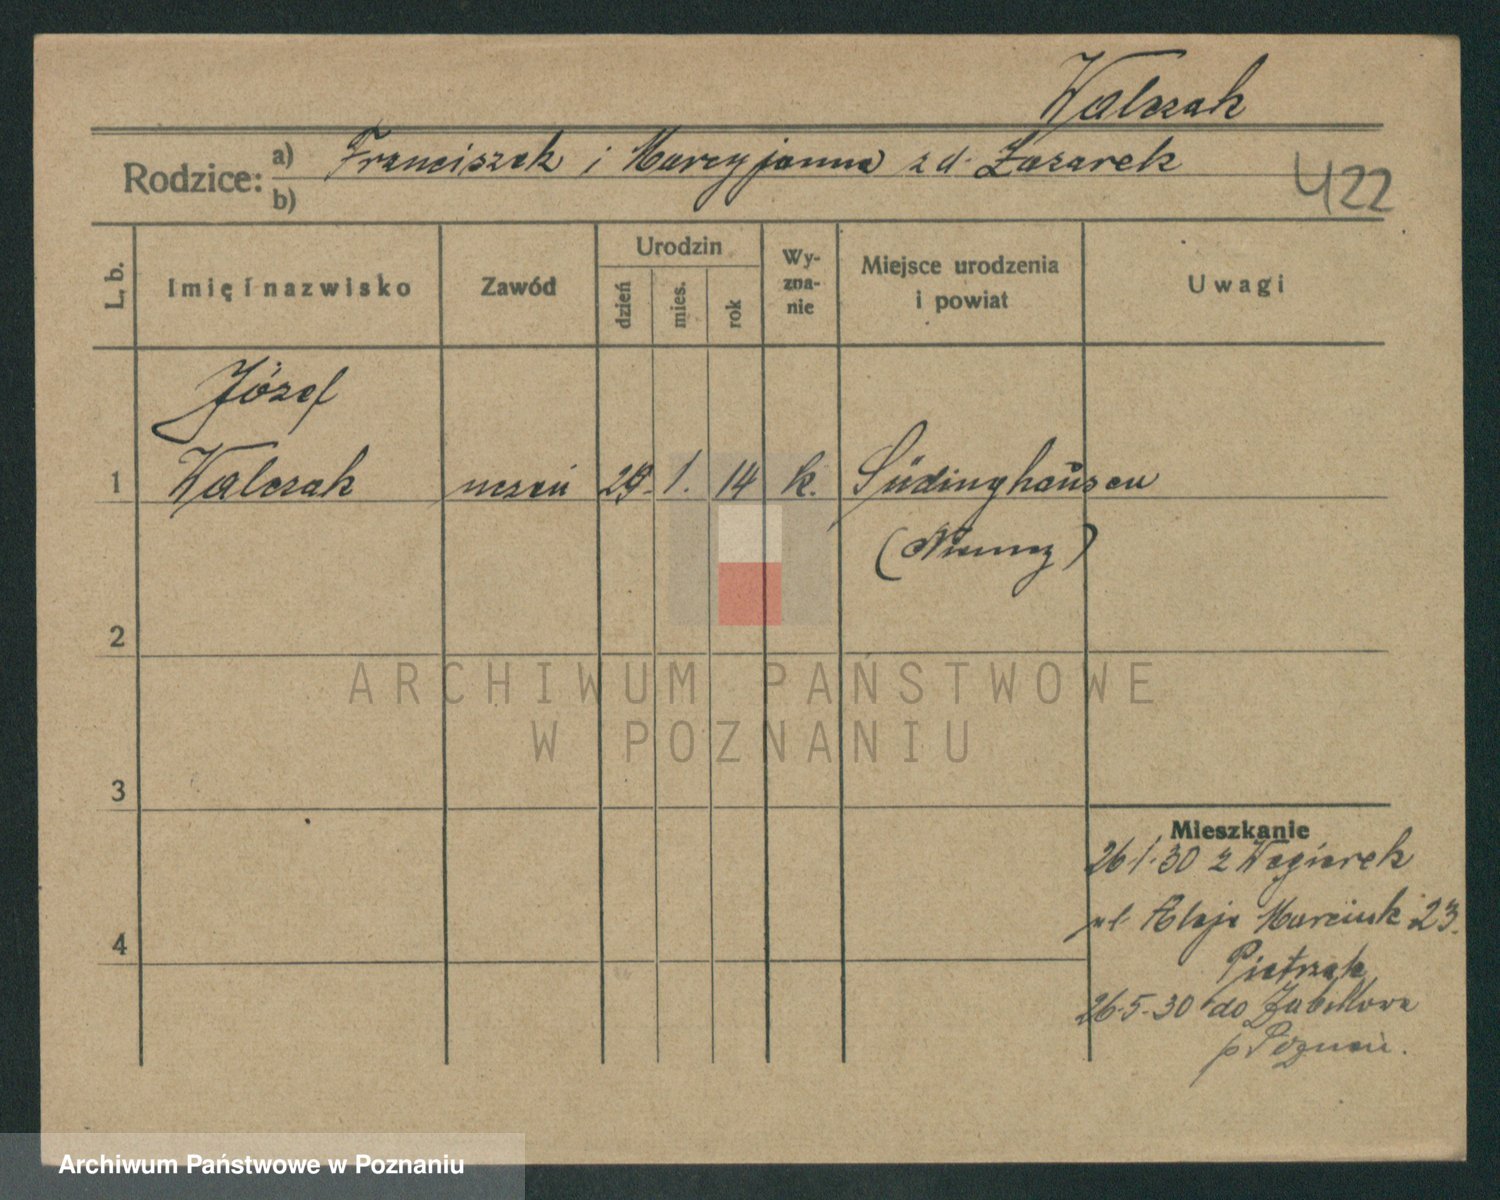 Walczak
Rodzice: a) Franciszek i Marcyjanna z d. Łazarek
b)
422
L. b.
Imię i nazwisko
Zawód
Urodzin
dzień
mies.
rok
Wy-
zna-
nie
Miejsce urodzenia
i powiat
Uwagi
Józef
1 Walczak uczeń 29. 1. 14 k. Südinghausen
(Niemcy)
2
ARCHIWUM PAŃSTWOWE
W POZNANIU
3
Mieszkanie
26.1.30 z Węgierek
ul. Aleje Marcink 23.
4
Pietrzak
26.5.30 do Żabikowa
p Poznań.
Archiwum Państwowe w Poznaniu